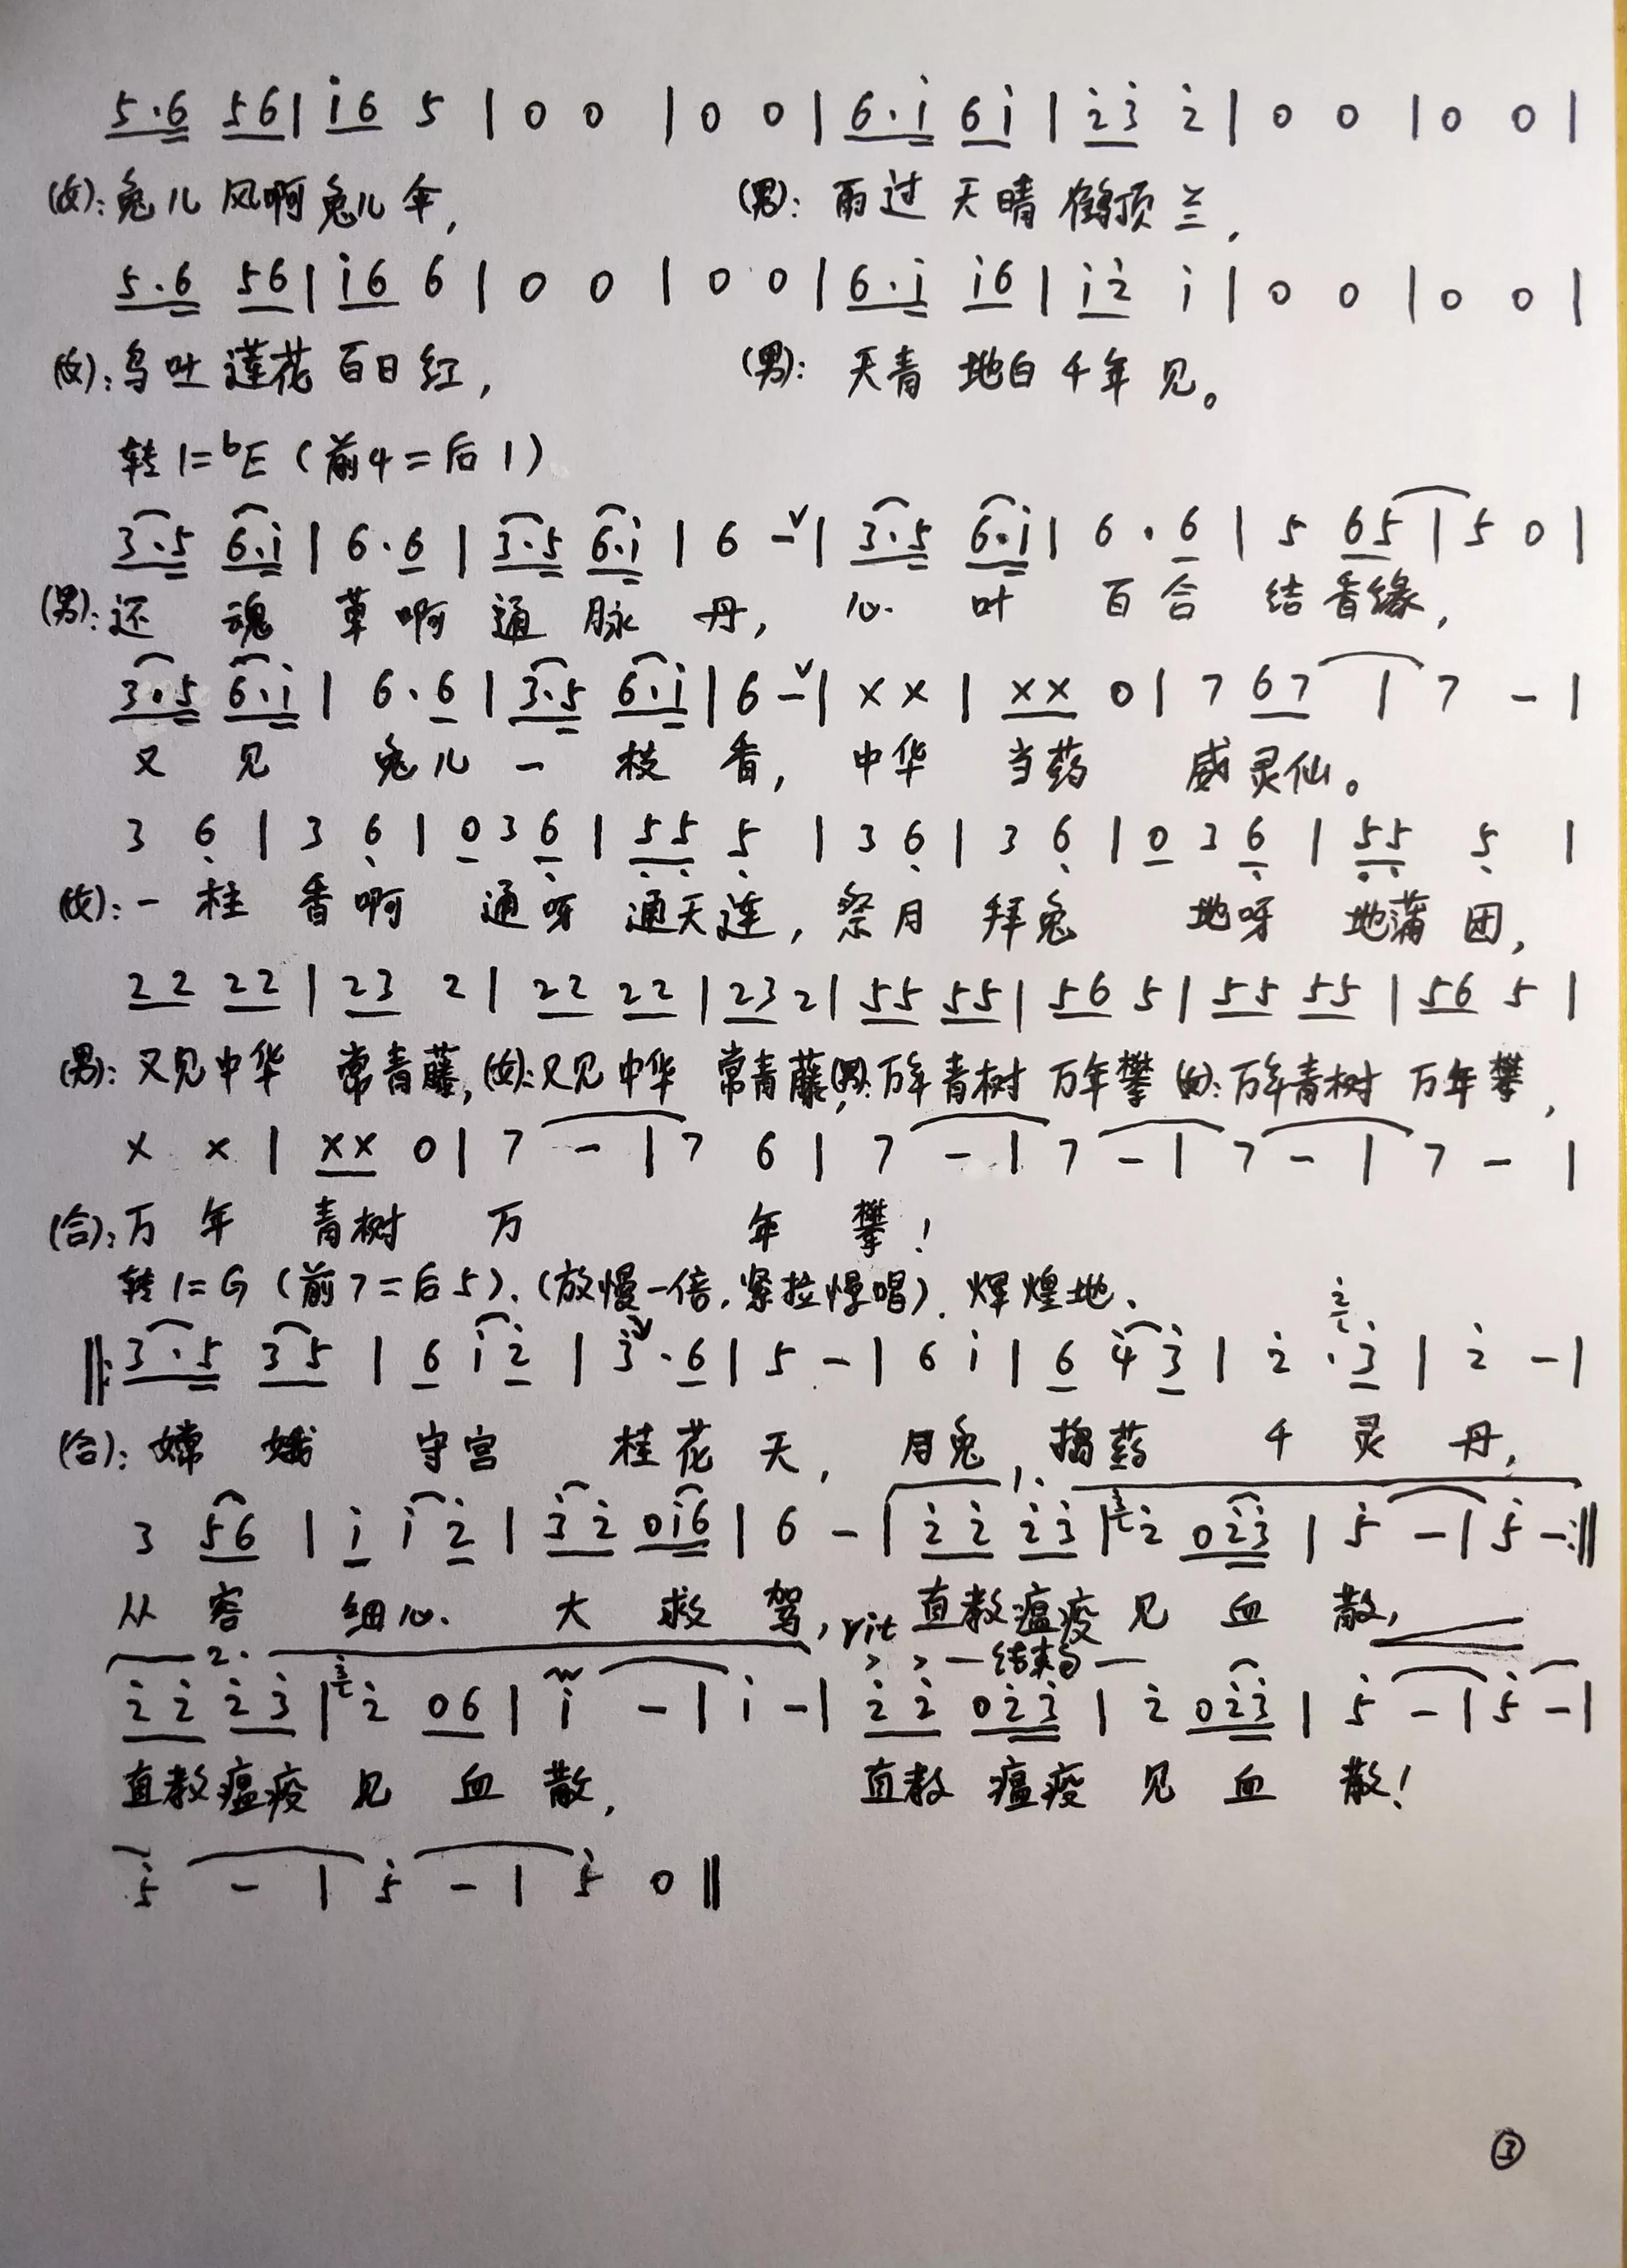 5·6 56 | i6 5 | 0 0 | 0 0 | 6·i 6i | 2̇3̇ 2̇ | 0 0 | 0 0 |
(女): 兔儿风啊兔儿伞, (男): 雨过天晴鹤顶兰,
5·6 56 | i6 6 | 0 0 | 0 0 | 6·i i6 | i2̇ i | 0 0 | 0 0 |
(女): 乌吐莲花百日红, (男): 天青地白千年见。
转1=ᵇE (前4=后1)
3·5 6·i | 6·6 | 3·5 6·i | 6 -ᵛ | 3·5 6·i | 6·6 | 5 65 | 5 0 |
(男): 还魂草啊通脉丹, 心叶百合结香缘,
3·5 6·i | 6·6 | 3·5 6·i | 6 -ᵛ | x x | xx 0 | 7 67 | 7 - |
又见兔儿一枝香, 中华当药威灵仙。
3 6̣ | 3 6̣ | 0 3 6̣ | 5̣5̣ 5̣ | 3 6̣ | 3 6̣ | 0 3 6̣ | 5̣5̣ 5̣ |
(女): 一柱香啊通呀通天连, 祭月拜兔地呀地蒲团,
22 22 | 23 2 | 22 22 | 23 2 | 55 55 | 56 5 | 55 55 | 56 5 |
(男): 又见中华常青藤, (女): 又见中华常青藤, (男): 万年青树万年攀 (女): 万年青树万年攀,
x x | xx 0 | 7 - | 7 6 | 7 - | 7 - | 7 - | 7 - |
(合): 万年青树万年攀!
转1=G (前7=后5). (放慢一倍, 紧拉慢唱). 辉煌地.
‖: 3·5 35 | 6 i 2̇ | 3̇·6 | 5 - | 6 i | 6 4̇ 3̇ | 2̇ · 2̇ 3̇ | 2̇ - |
(合): 嫦娥守宫桂花天, 月兔捣药千灵丹,
3 56 | i i 2̇ | 3̇2̇ 0i6 | 6 - | 1. 2̇2̇ 2̇3̇ | 3̇ 2̇ 02̇3̇ | 5̇ - | 5̇ - :‖
从容细心大救驾, rit 直教瘟疫见血散,
2. 2̇2̇ 2̇3̇ | 3̇ 2̇ 06 | i - | i - | > > —结束句— 2̇2̇ 02̇3̇ | 2̇ 02̇3̇ | 5̇ - | 5̇ - |
直教瘟疫见血散, 直教瘟疫见血散!
5̇ - | 5̇ - | 5̇ 0 ‖
③